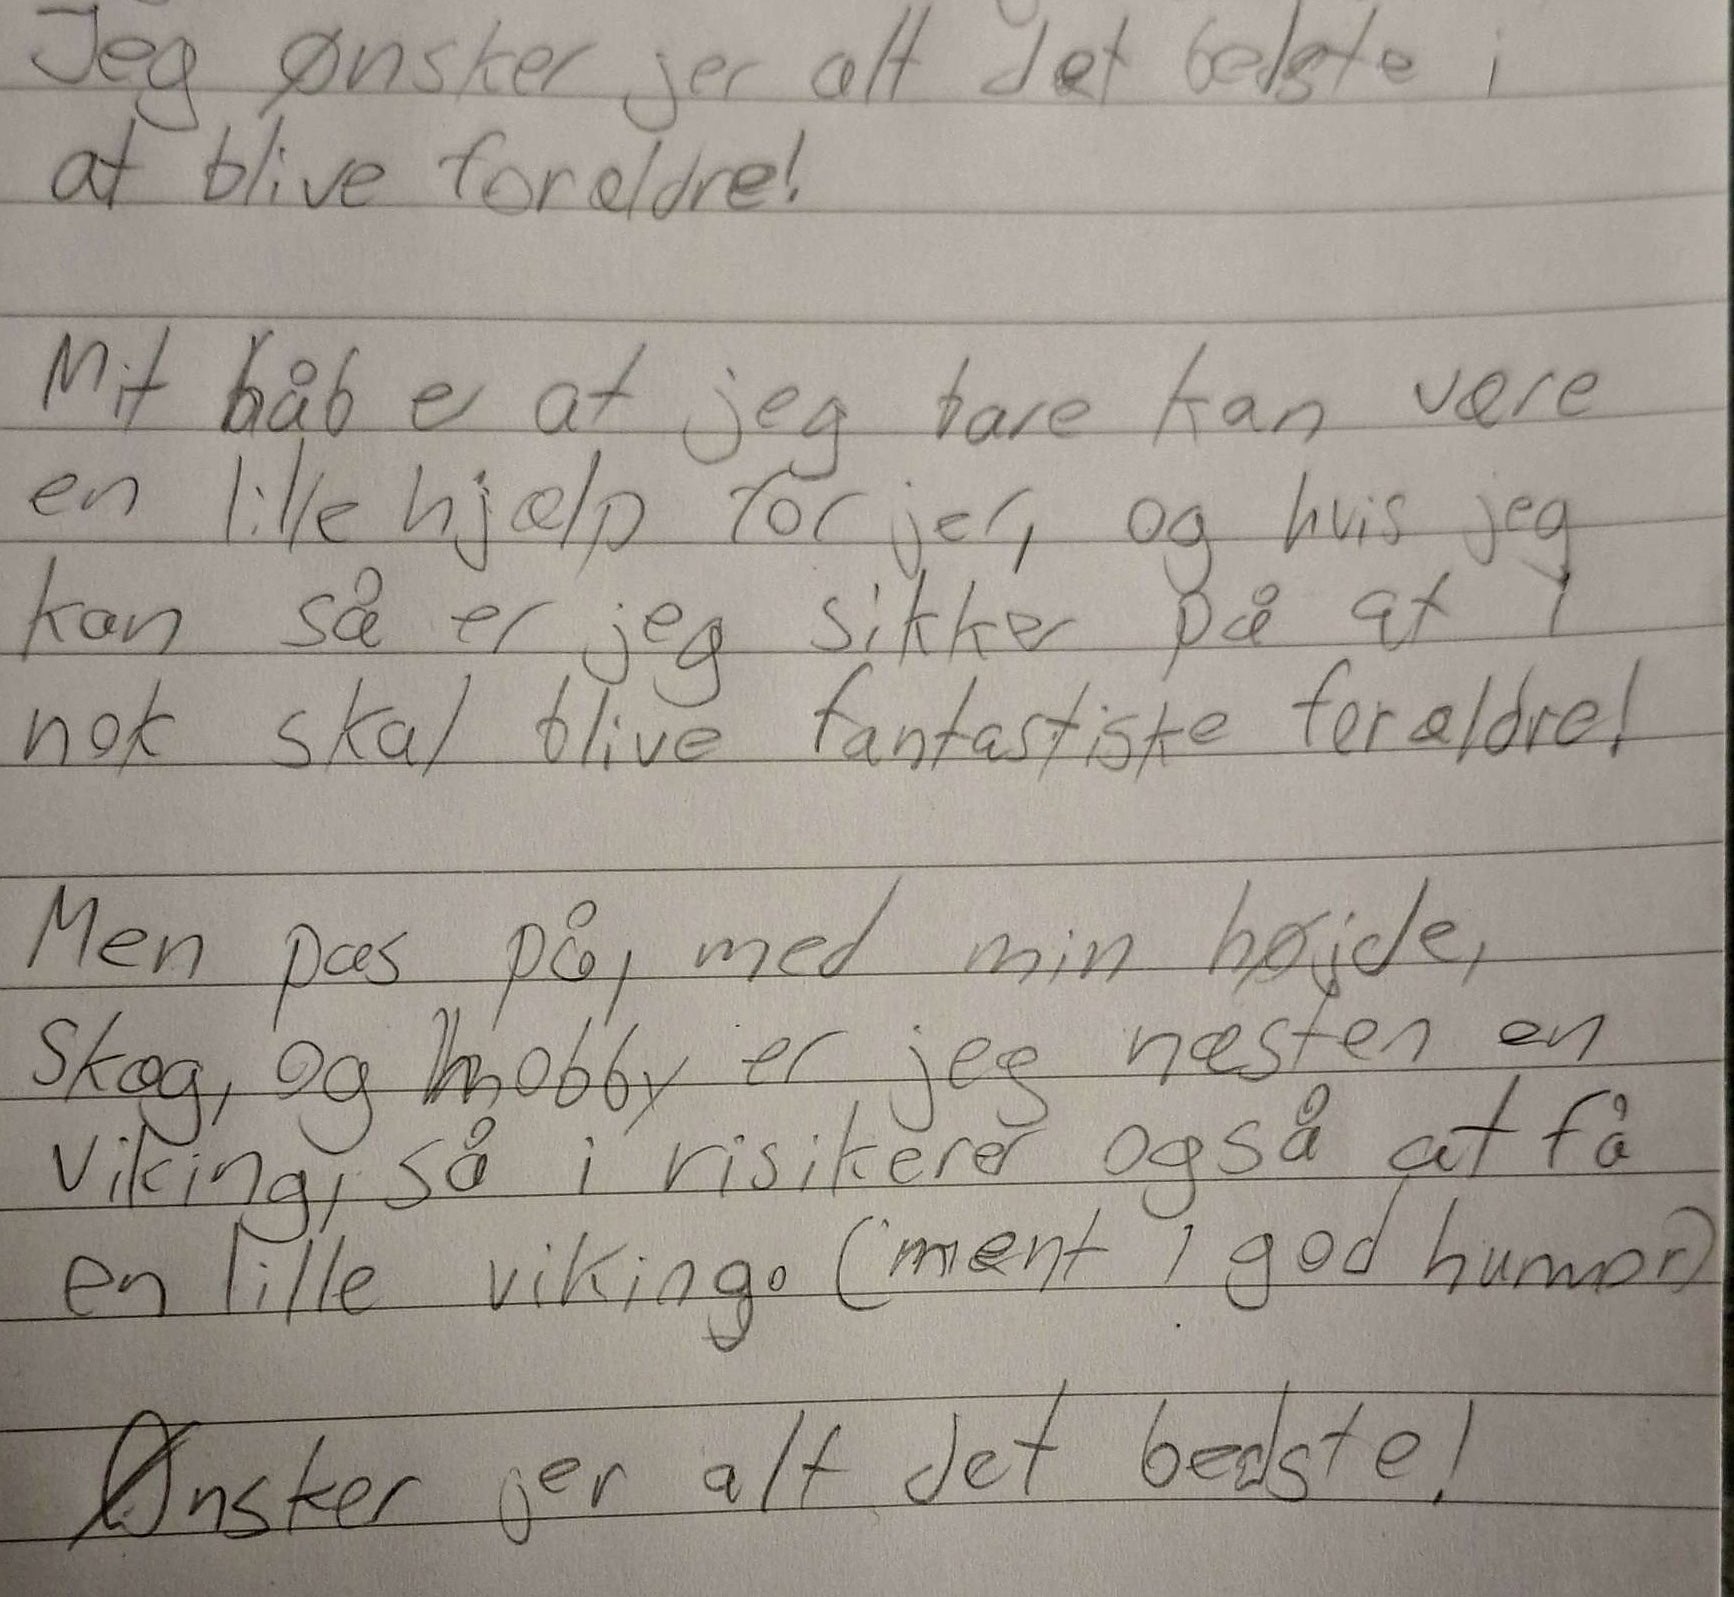 Jeg ønsker jer alt det bedste i
at blive forældre!
Mit håb er at jeg bare kan være
en lille hjælp for jer, og hvis jeg
kan så er jeg sikker på at I
nok skal blive fantastiske forældre!
Men pas på, med min højde,
skæg, og hobby er jeg næsten en
viking, så i risikerer også at få
en lille viking. (ment i god humor)
Ønsker jer alt det bedste!